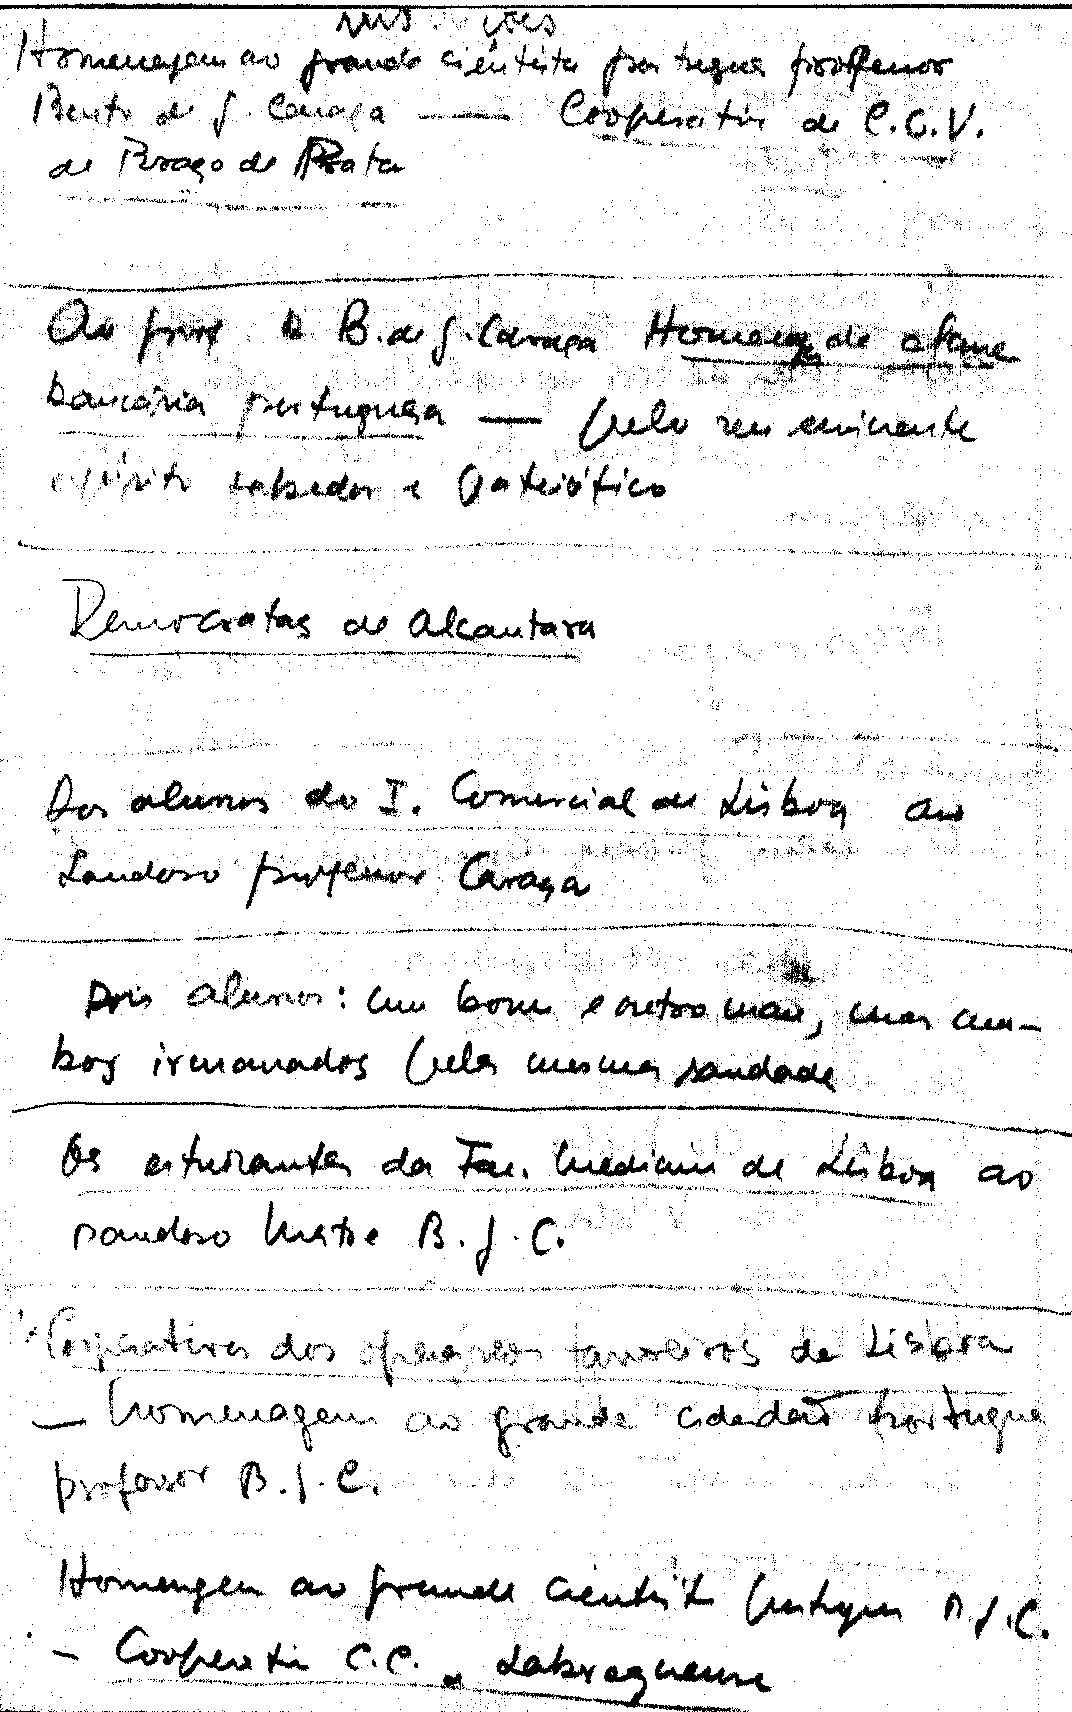 Homenagem ao grande cientista portugues professor
Bento de J. Caraça — Cooperativa de C.C.V.
de Braço de Prata
Ao prof B. de J. Caraça Homenagem de
bancária portuguesa — pelo seu eminente
espírito sabedor e patriótico
Democratas de Alcantara
Dos alunos do I. Comercial de Lisboa ao
Saudoso professor Caraça
Dois alunos: um bom e outro mau, mas am-
bos irmanados pela mesma saudade
Os estudantes da Fac. Medicina de Lisboa ao
saudoso Mestre B. J. C.
Cooperativa dos operários tanoeiros de Lisboa
— homenagem ao grande cidadão portugues
professor B. J. C.
Homenagem ao grande cientista portugues B. J. C.
— Cooperativa C.C.